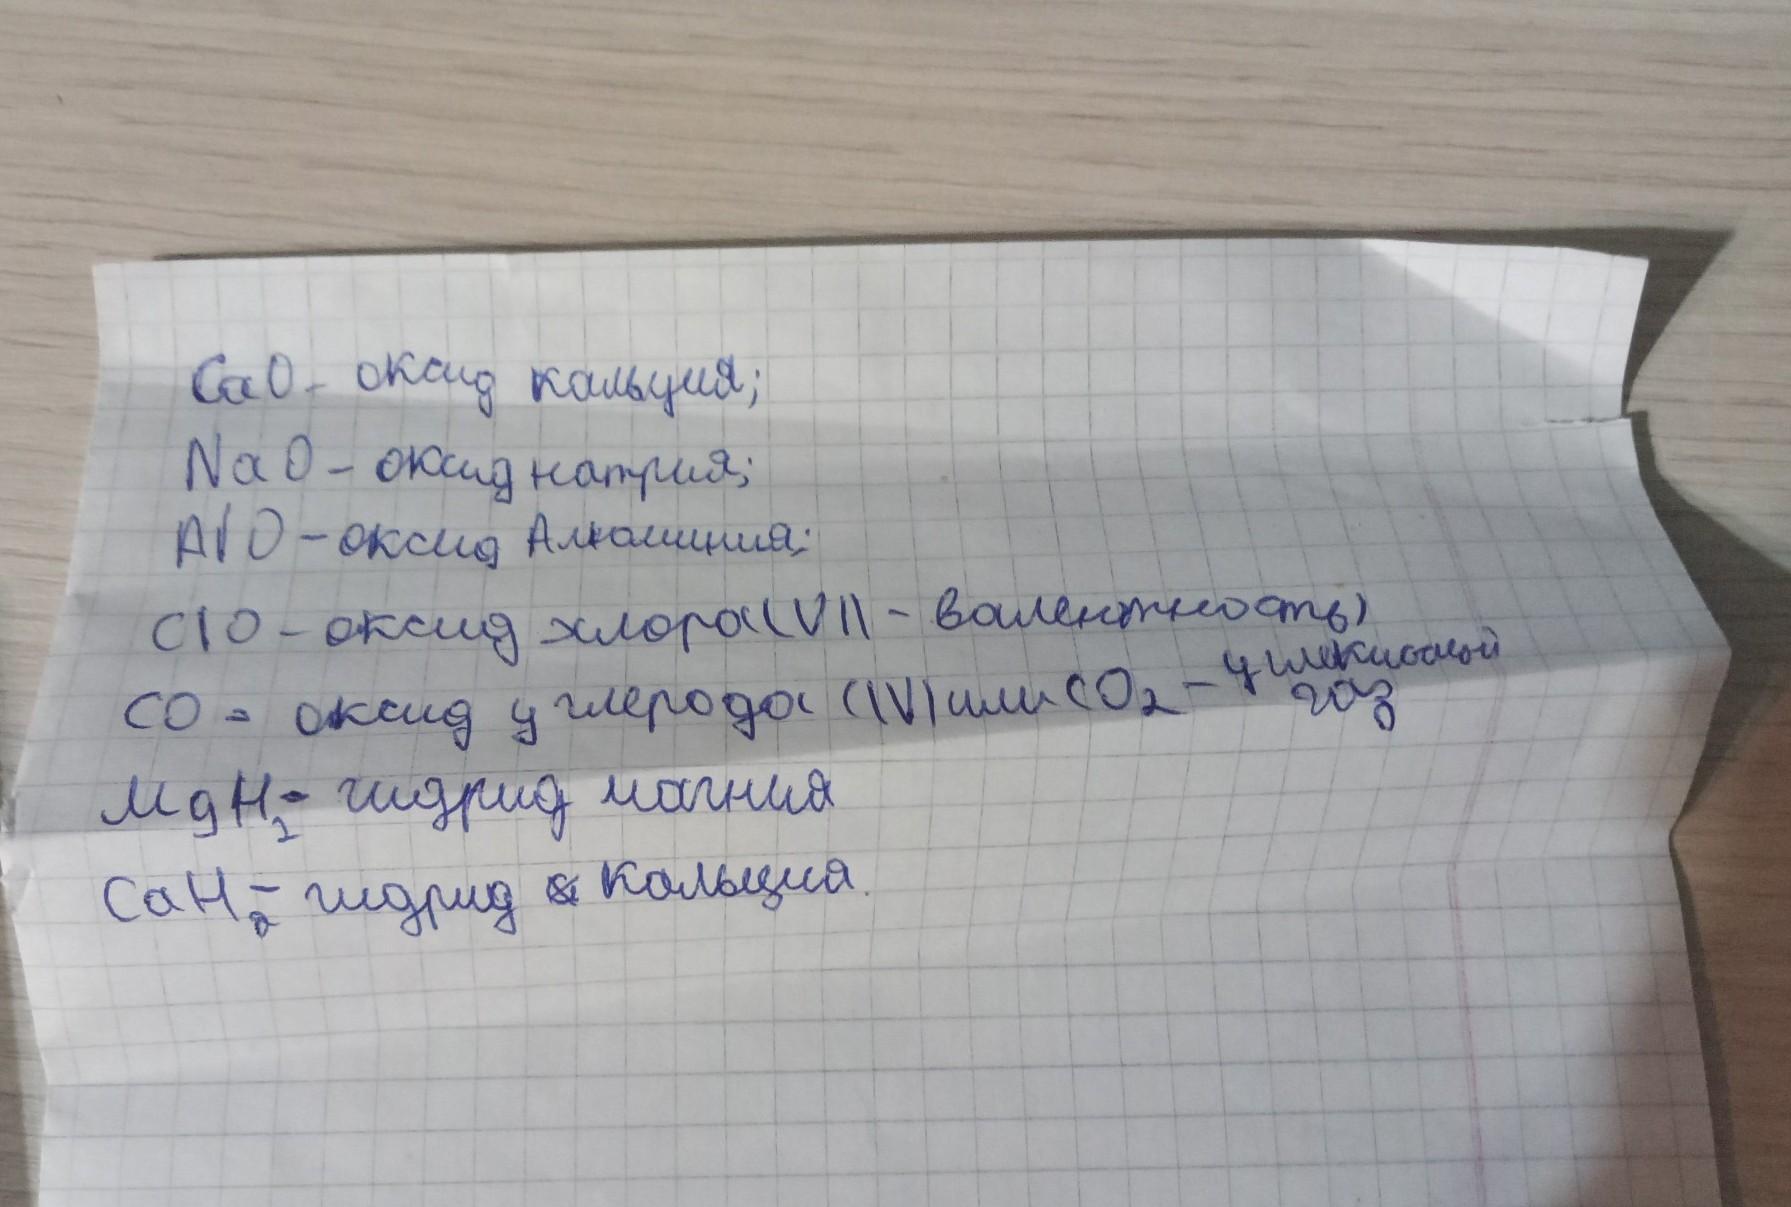 CaO - оксид кальция;
NaO - оксид натрия;
AlO - оксид Алюминия;
ClO - оксид хлора (VI) - валентность)
CO - оксид углерода (IV) или CO2 - углекислый газ
MgH2 - гидрид магния
CaH2 - гидрид кальция.